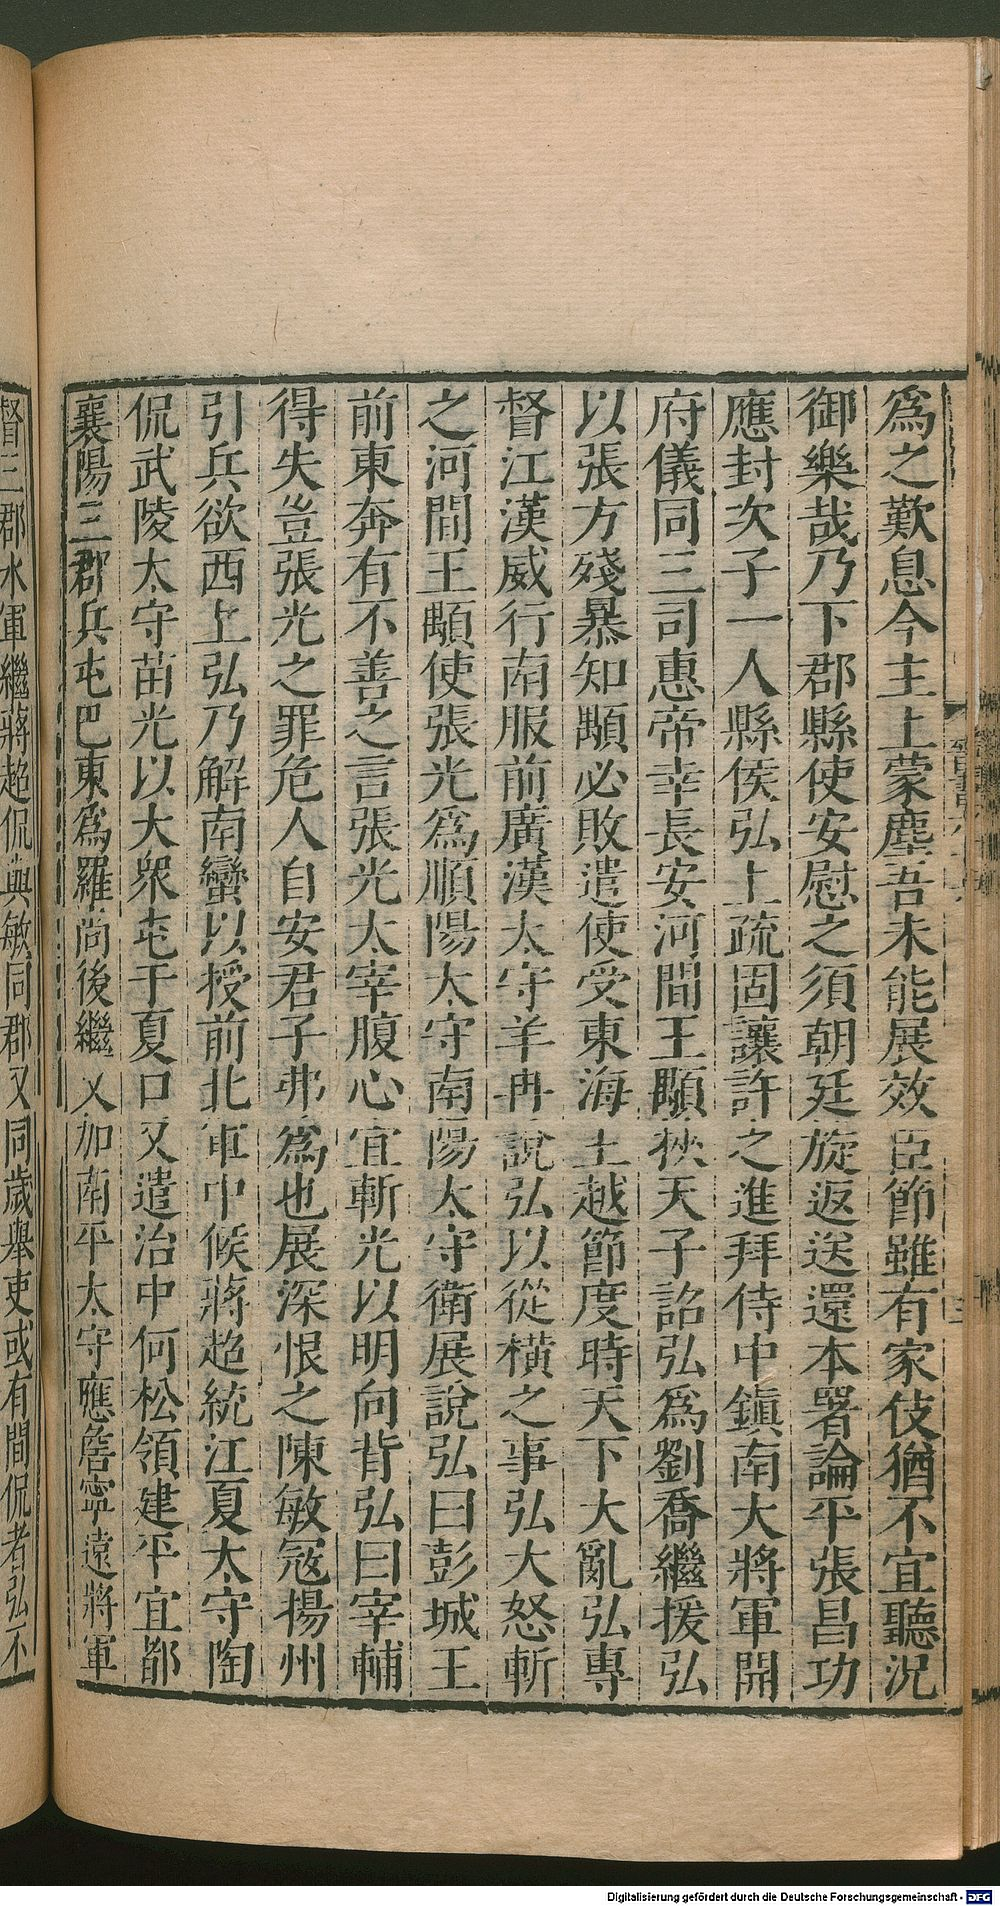 爲之歎息今主上蒙塵吾未能展效臣節雖有家伎猶不宜聽況
御樂哉乃下郡縣使安慰之須朝廷旋返送還本署論平張昌功
應封次子一人縣侯弘上疏固讓許之進拜侍中鎭南大將軍開
府儀同三司惠帝幸長安河間王顒挾天子詔弘爲劉喬繼援弘
以張方殘暴知顒必敗遣使受東海王越節度時天下大亂弘專
督江漢威行南服前廣漢太守羊冉說弘以從橫之事弘大怒斬
之河間王顒使張光爲順陽太守南陽太守衛展說弘曰彭城王
前東奔有不善之言張光太宰腹心宜斬光以明向背弘曰宰輔
得失豈張光之罪危人自安君子弗爲也展深恨之陳敏冦揚州
引兵欲西上弘乃解南蠻以授前北軍中候蔣超統江夏太守陶
侃武陵太守苗光以大衆屯于夏口又遣治中何松領建平宜都
襄陽三郡兵屯巴東爲羅尚後繼又加南平太守應詹寧遠將軍
督三郡水軍繼蔣超侃與敏同郡又同歲舉吏或有間侃者弘不
Digitalisierung gefördert durch die Deutsche Forschungsgemeinschaft - DFG